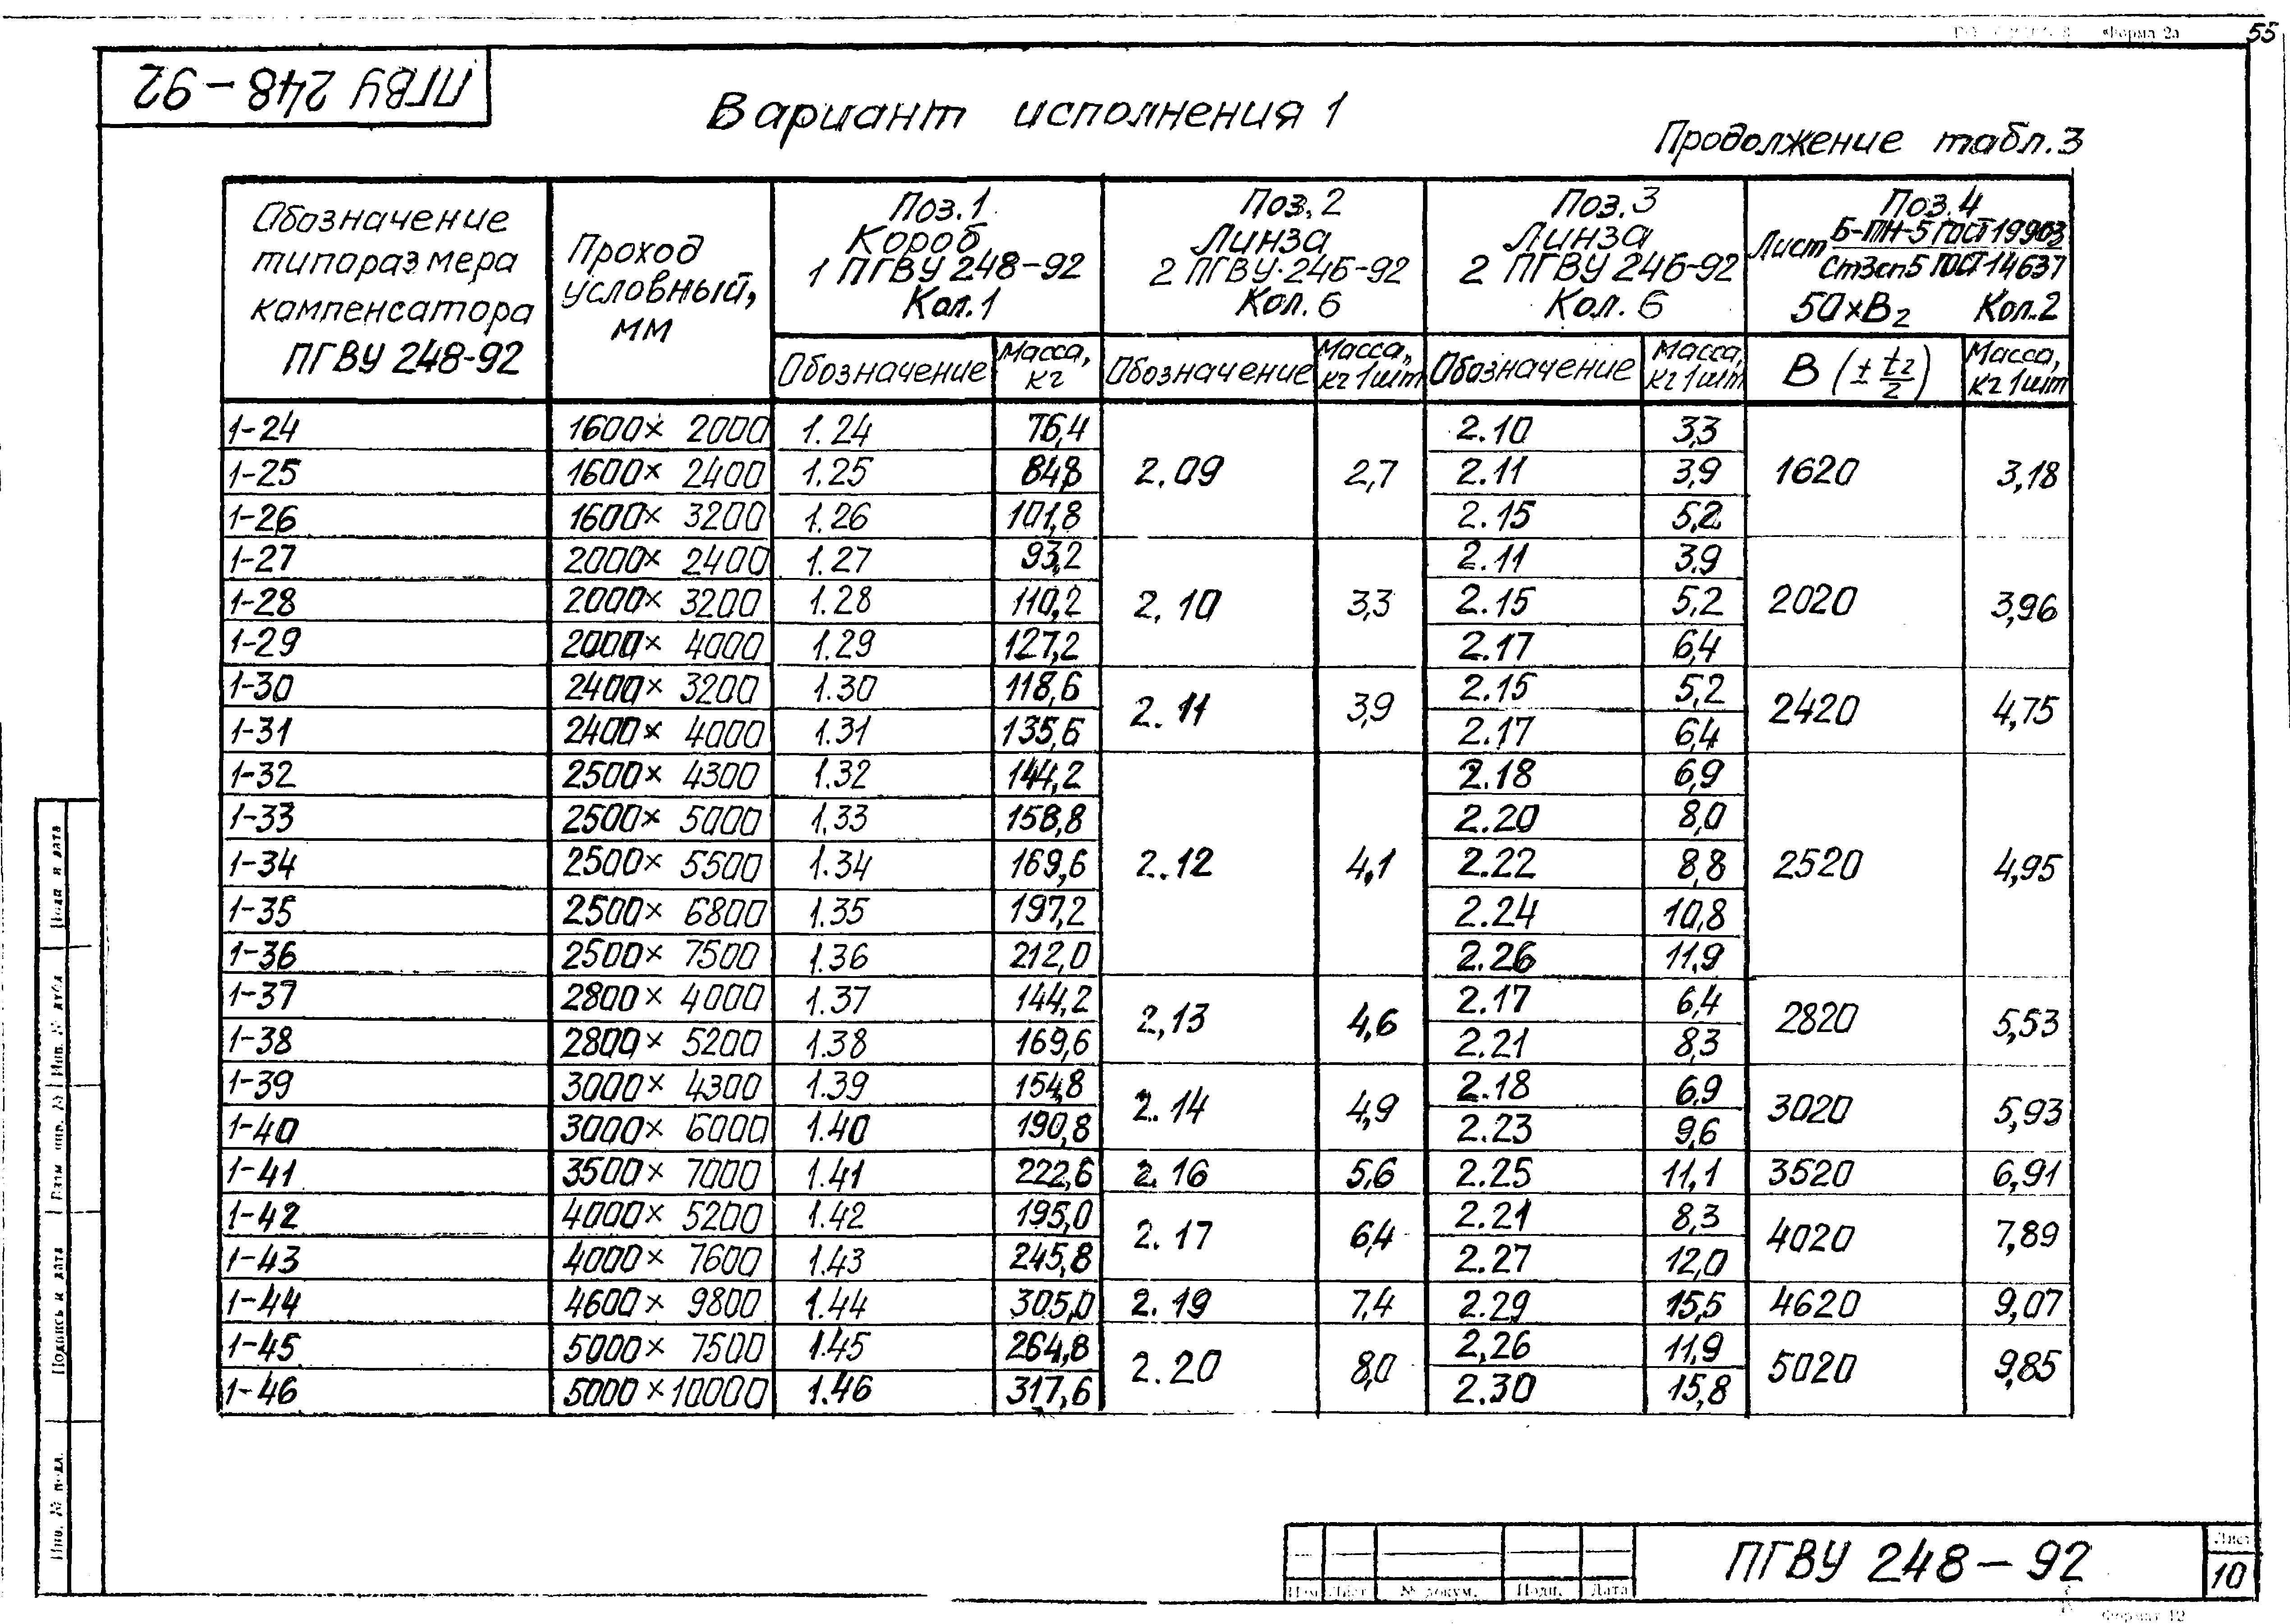 55
Форма 2а
ПГВУ 248-92
Вариант исполнения 1
Продолжение табл.3
Обозначение типоразмера компенсатора ПГВУ 248-92
Проход условный, мм
Поз.1 Короб 1 ПГВУ 248-92 Кол.1
Поз.2 Линза 2 ПГВУ 246-92 Кол.6
Поз.3 Линза 2 ПГВУ 246-92 Кол.6
Поз.4 Лист Б-ПН-5 ГОСТ 19903 Ст3сп5 ГОСТ 14637 50×В2 Кол.2
Обозначение Масса, кг Обозначение Масса, кг 1шт Обозначение Масса, кг 1шт В (± t2/2) Масса, кг 1шт
1-24 1600×2000 1.24 76,4 2.10 3,3
1-25 1600×2400 1.25 84,8 2.09 2,7 2.11 3,9 1620 3,18
1-26 1600×3200 1.26 101,8 2.15 5,2
1-27 2000×2400 1.27 93,2 2.11 3,9
1-28 2000×3200 1.28 110,2 2.10 3,3 2.15 5,2 2020 3,96
1-29 2000×4000 1.29 127,2 2.17 6,4
1-30 2400×3200 1.30 118,6 2.11 3,9 2.15 5,2 2420 4,75
1-31 2400×4000 1.31 135,6 2.17 6,4
1-32 2500×4300 1.32 144,2 2.18 6,9
1-33 2500×5000 1.33 158,8 2.20 8,0
1-34 2500×5500 1.34 169,6 2.12 4,1 2.22 8,8 2520 4,95
1-35 2500×6800 1.35 197,2 2.24 10,8
1-36 2500×7500 1.36 212,0 2.26 11,9
1-37 2800×4000 1.37 144,2 2,13 4,6 2.17 6,4 2820 5,53
1-38 2800×5200 1.38 169,6 2.21 8,3
1-39 3000×4300 1.39 154,8 2.14 4,9 2.18 6,9 3020 5,93
1-40 3000×6000 1.40 190,8 2.23 9,6
1-41 3500×7000 1.41 222,6 2.16 5,6 2.25 11,1 3520 6,91
1-42 4000×5200 1.42 195,0 2.17 6,4 2.21 8,3 4020 7,89
1-43 4000×7600 1.43 245,8 2.27 12,0
1-44 4600×9800 1.44 305,0 2.19 7,4 2.29 15,5 4620 9,07
1-45 5000×7500 1.45 264,8 2.20 8,0 2,26 11,9 5020 9,85
1-46 5000×10000 1.46 317,6 2.30 15,8
Подп и дата
Инв. № дубл
Взам инв. №
Подпись и дата
Инв. № подл.
Изм Лист № докум. Подп. Дата
ПГВУ 248-92
Лист
10
Формат 12